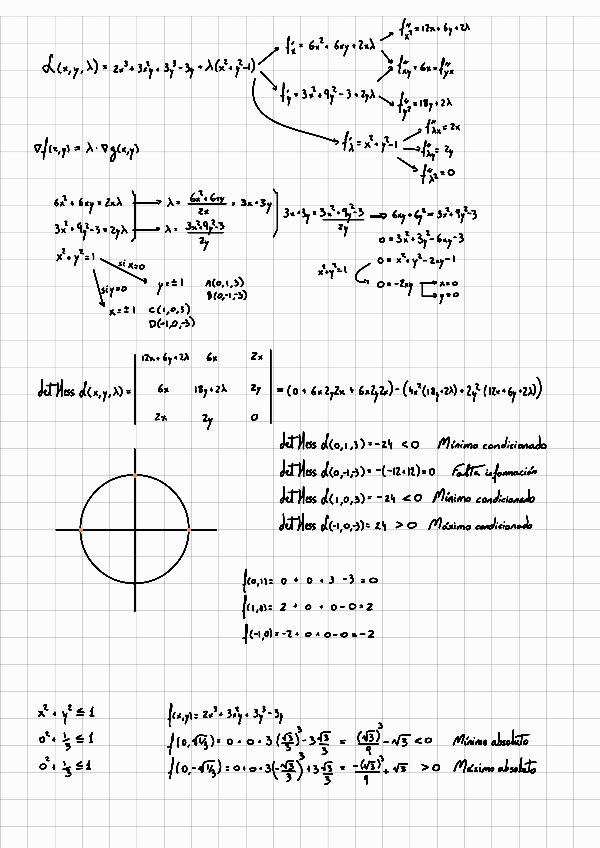 L(x,y,λ) = 2x³+3x²y+3y³-3y+λ(x²+y²-1)
f'ₓ = 6x²+6xy+2xλ
f''ₓ² = 12x+6y+2λ
f''ₓᵧ = 6x = f''ᵧₓ
f'ᵧ = 3x²+9y²-3+2yλ
f''ᵧ² = 18y+2λ
f'λ = x²+y²-1
f''λₓ = 2x
f''λᵧ = 2y
f''λ² = 0
∇f(x,y) = λ·∇g(x,y)
6x²+6xy = 2xλ → λ = (6x²+6xy)/2x = 3x+3y
3x²+9y²-3 = 2yλ → λ = (3x²+9y²-3)/2y
3x+3y = (3x²+9y²-3)/2y → 6xy+6y² = 3x²+9y²-3
0 = 3x²+3y²-6xy-3
x²+y²=1
0 = x²+y²-2xy-1
0 = -2xy
x=0
y=0
x²+y²=1
si x=0
y=±1 A(0,1,3)
B(0,-1,-3)
si y=0
x=±1 C(1,0,3)
D(-1,0,-3)
det Hess L(x,y,λ) =
12x+6y+2λ 6x 2x
6x 18y+2λ 2y
2x 2y 0
= (0+6x2y2x+6x2y2x)-(4x²(18y+2λ)+2y²(12x+6y+2λ))
det Hess L(0,1,3) = -24 <0 Mínimo condicionado
det Hess L(0,-1,-3) = -(-12+12)=0 Falta información
det Hess L(1,0,3) = -24 <0 Mínimo condicionado
det Hess L(-1,0,-3) = 24 >0 Máximo condicionado
f(0,1) = 0 + 0 + 3 -3 = 0
f(1,0) = 2 + 0 + 0-0 = 2
f(-1,0) = -2 + 0 + 0-0 = -2
x²+y² ≤ 1 f(x,y) = 2x³+3x²y+3y³-3y
0²+1/3 ≤ 1 f(0,√1/3) = 0+0+3(√3/3)³-3√3/3 = (√3)³/9-√3 <0 Mínimo absoluto
0²+1/3 ≤ 1 f(0,-√1/3) = 0+0+3(-√3/3)³+3√3/3 = -(√3)³/9+√3 >0 Máximo absoluto